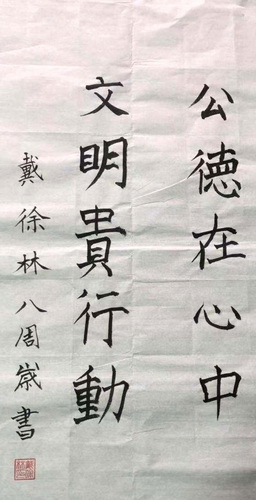 公德在心中
文明貴行動
戴徐林八周歲書